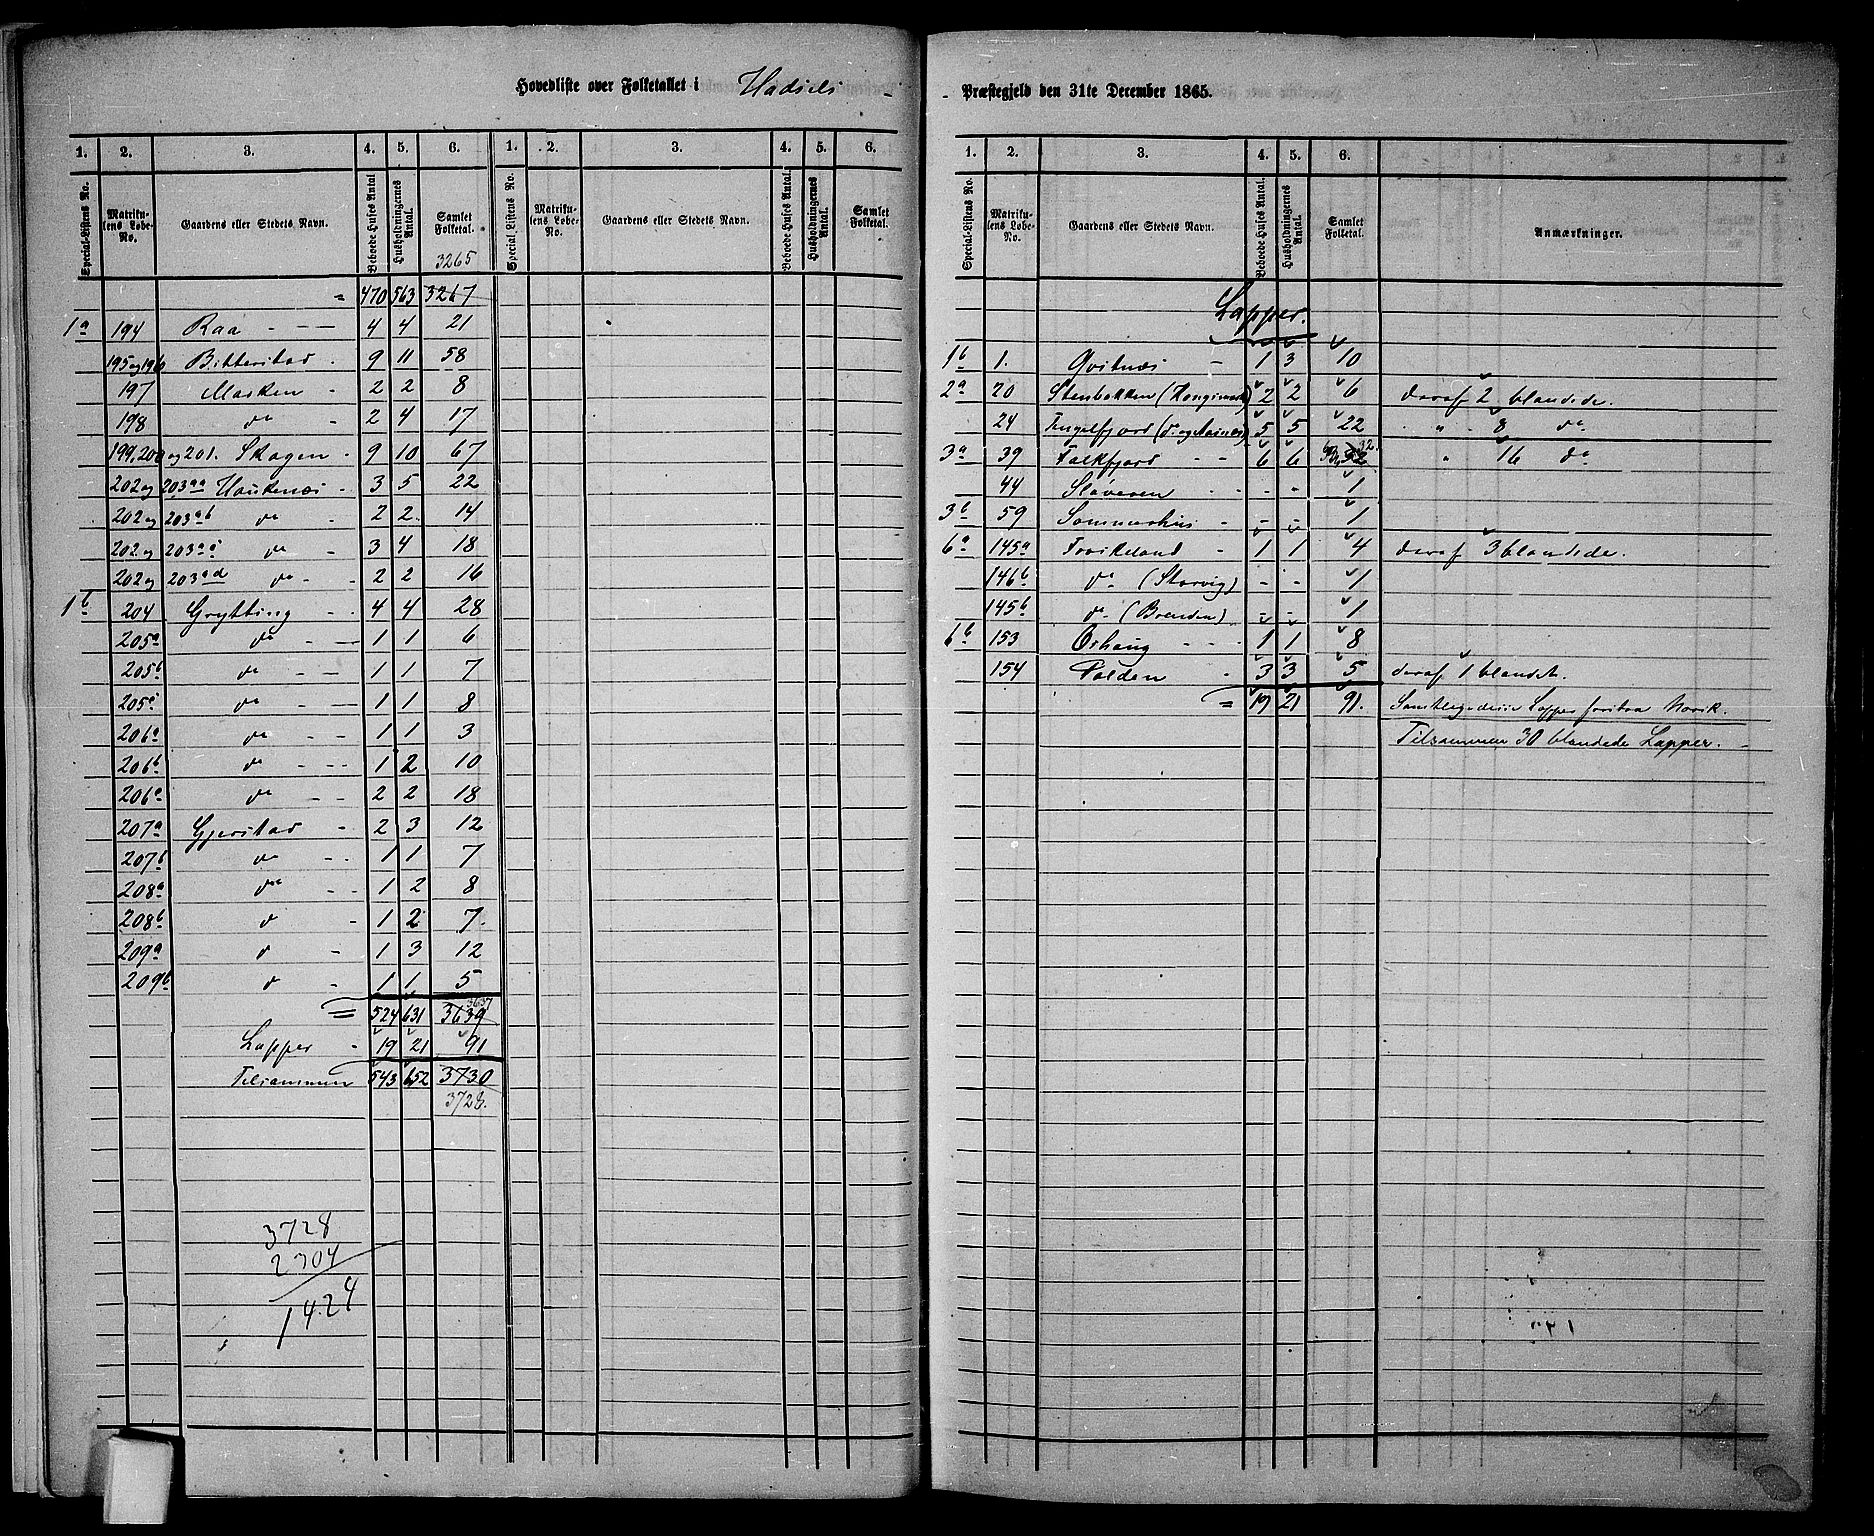 Hovedliste over Folketallet i Hadsels
Præstegjeld den 31te December 1865.
1. 2. 3. 4. 5. 6. 1. 2. 3. 4. 5. 6.
Special-Listens No. Matrikulens Løbe-No. Gaardens eller Stedets Navn. Beboede Huses Antal Husholdningernes Antal. Samlet Folketal. Special Listens No. Matrikulens Løbe-No. Gaardens eller Stedets Navn. Beboede Huses Antal. Husholdningernes Antal. Samlet Folketal.
3265
= 470 563 3267
1a 194 Raa - - - 4 4 21
195 og 196 Bitterstad - 9 11 58
197 Marken - 2 2 8
198 do - 2 4 17
199, 200 og 201. Skagen - 9 10 67
202 og 203aa Haukenæs - 3 5 22
202 og 203ab do - 2 2 14
202 og 203ac do - 3 4 18
202 og 203ad do - - 2 2 16
1b 204 Grytting - - 4 4 28
205a do - - 1 1 6
205b do - - 1 1 7
205c do - - 1 1 8
206a do - - 1 1 3
206b do - - - 1 2 10
206c do - - 2 2 18
207a Gjerstad - 2 3 12
207b do - - 1 1 7
208a do - - 1 2 8
208b d - 1 2 7.
209a d - 1 3 12
209b d - 1 1 5
3637
= 524 631 3639
Lapper - 19 21 91
Tilsammen 543 652 3730
3728.
3728
2304
1424
1. 2. 3. 4. 5. 6.
Special-Listens No. Matrikulens Løbe-No. Gaardens eller Stedets Navn. Beboede Huses Antal. Husholdningernes Antal. Samlet Folketal. Anmærkninger.
Lapper.
1b 1. Qvitnæs - 1 3 10
2a 20 Stenbakken 2 2 6 deraf 2 blandede.
24 Fingelfjord 5 5 22 " - 8 do
3a 39 Falkfjord - - 6 6 32. " 16 do
44 Sløveren - - - - 1
3b 59 Sommerhus - - - 1
6a 145a Frøskeland - 1 1 4 deraf 3 blandede.
146b do (Storvig) - - 1
145b do (Brenden) - - 1
6b 153 Oshaug - - - 1 1 8
154 Polden - 3 3 5 deraf 1 blandet.
= 19 21 91. Samtlige disse Lapper forstaa Norsk.
Tilsammen 30 blandede Lapper. -